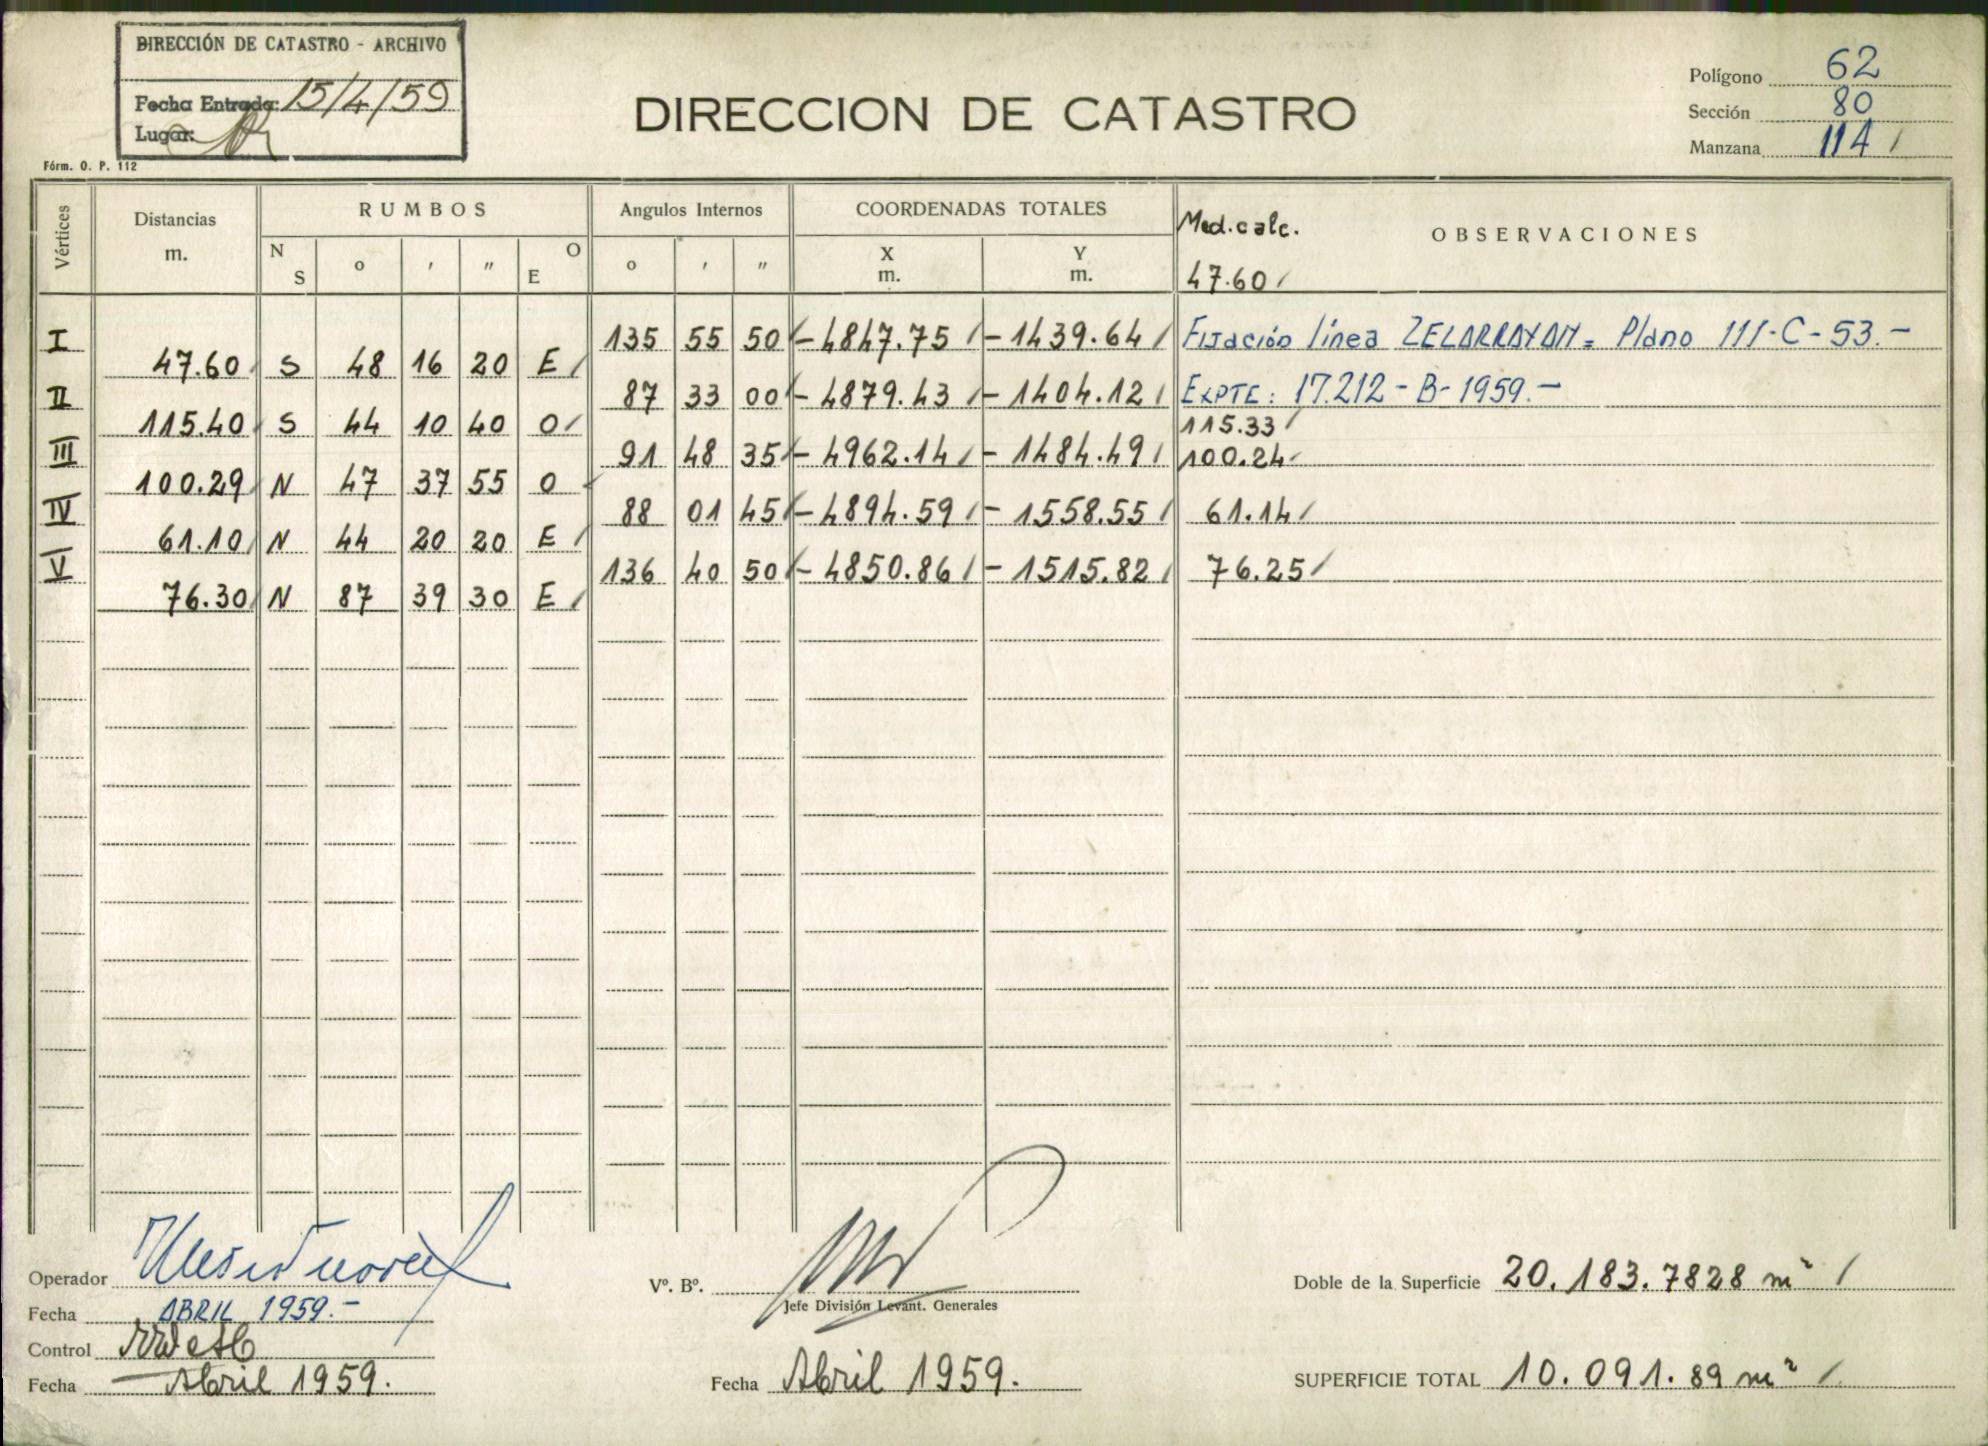 DIRECCIÓN DE CATASTRO - ARCHIVO
Fecha Entrada: 15/4/59
Lugar:
Fórm. O. P. 112
DIRECCION DE CATASTRO
Polígono 62
Sección 80
Manzana 114 /
Vértices Distancias m. RUMBOS N S ° ' " O E Angulos Internos ° ' " COORDENADAS TOTALES X m. Y m. Med. calc. OBSERVACIONES
47.60 /
I 135 55 50 / - 4847.75 / - 1439.64 / Fijación línea ZELARRAYAN = Plano 111-C-53.-
47.60 / S 48 16 20 E /
II 87 33 00 / - 4879.43 / - 1404.12 / EXPTE: 17.212 - B - 1959.-
115.40 / S 44 10 40 O / 115.33 /
III 91 48 35 / - 4962.14 / - 1484.49 / 100.24 /
100.29 / N 47 37 55 O /
IV 88 01 45 / - 4894.59 / - 1558.55 / 61.14 /
61.10 / N 44 20 20 E /
V 136 40 50 / - 4850.86 / - 1515.82 / 76.25 /
76.30 / N 87 39 30 E /
Operador
Fecha ABRIL 1959.-
Control
Fecha Abril 1959.
Vº. Bº.
Jefe División Levant. Generales
Fecha Abril 1959.
Doble de la Superficie 20.183.7828 m² /
SUPERFICIE TOTAL 10.091.89 m² /